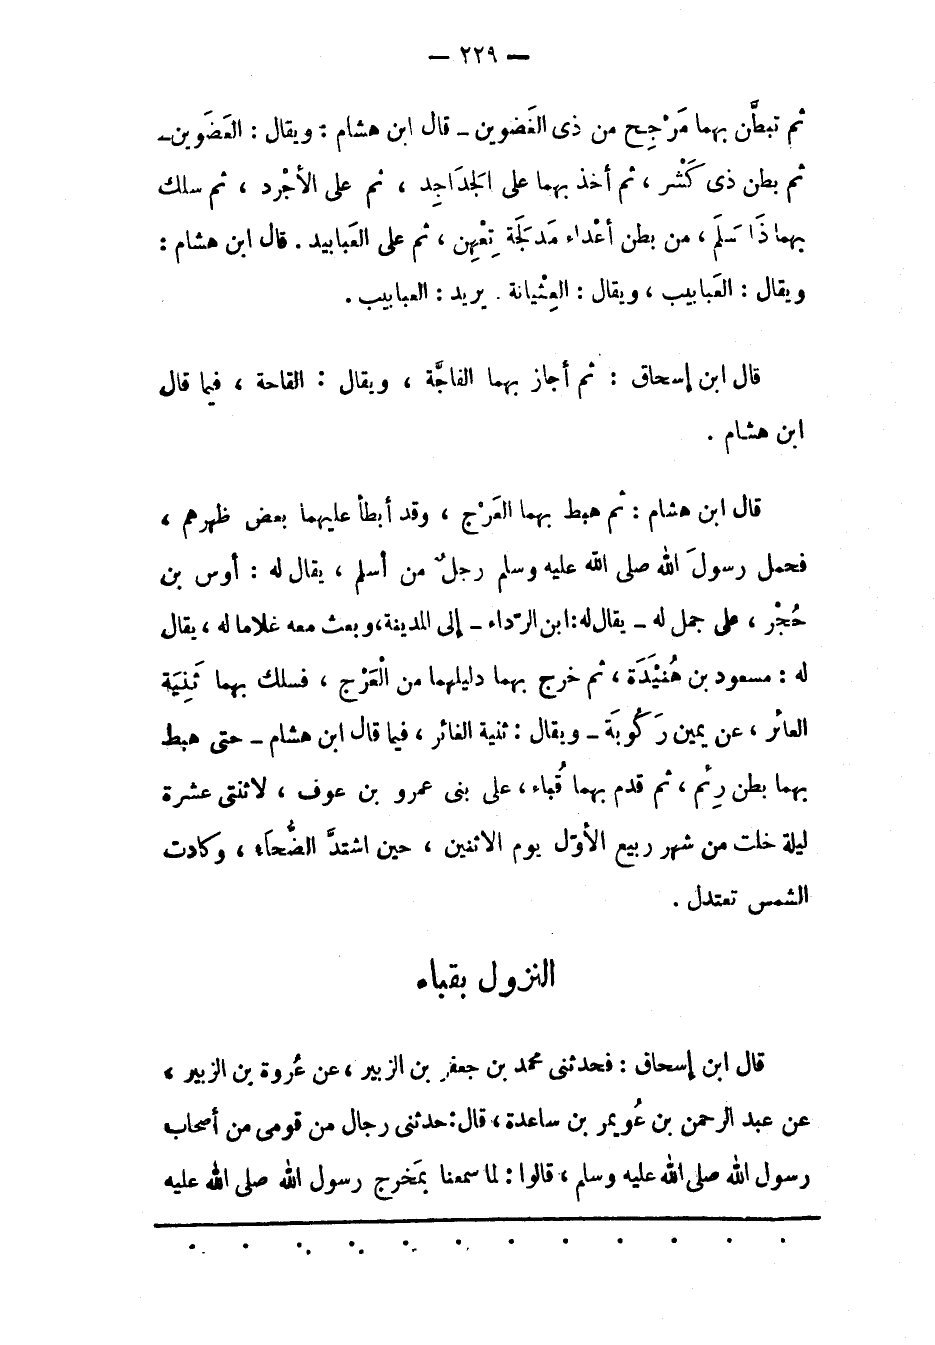 — ٢٢٩ —
ثم تبطَّن بهما مَرْجِح من ذى الغَضوين ـ قال ابن هشام : ويقال : العَضَوين ـ
ثم بطن ذى كَشْر ، ثم أخذ بهما على الجَدَاجِد ، ثم على الأجْرد ، ثم سلك
بهما ذَا سَلَم ، من بطن أعْداء مَدلَجَة تِعْهِن ، ثم على العَبابيد . قال ابن هشام :
ويقال : العَبابيب ، ويقال : العِثْيانة . يريد : العبابيب .
قال ابن إسحاق : ثم أجاز بهما الفاجَّة ، ويقال : القاحة ، فيما قال
ابن هشام .
قال ابن هشام : ثم هبط بهما العَرْج ، وقد أبطأ عليهما بعض ظهرهم ،
فحمل رسولَ الله صلى الله عليه وسلم رجلٌ من أسلم ، يقال له : أوس بن
حُجْر ، على جمل له ـ يقال له : ابن الرّداء ـ إلى المدينة ، وبعث معه غلاما له ، يقال
له : مسعود بن هُنَيْدَة ، ثم خرج بهما دليلهما من الْعَرْج ، فسلك بهما ثَنِيَة
العائر ، عن يمين رَكُوبَة ـ ويقال : ثنية الغائر ، فيما قال ابن هشام ـ حتى هبط
بهما بطن رِئْم ، ثم قدم بهما قُباء ، على بنى عمرو بن عوف ، لاثنتى عشرة
ليلة خلت من شهر ربيع الأوّل يوم الاثنين ، حين اشتدَّ الضُّحاء ، وكادت
الشمس تعتدل .
النزول بقباء
قال ابن إسحاق : فحدثنى محمد بن جعفر بن الزبير ، عن عُروة بن الزبير ،
عن عبد الرحمن بن عُويمر بن ساعدة ، قال : حدثنى رجال من قومى من أصحاب
رسول الله صلى الله عليه وسلم ، قالوا : لما سمعنا بمَخرج رسول الله صلى الله عليه
. . . . . . . . . . . .